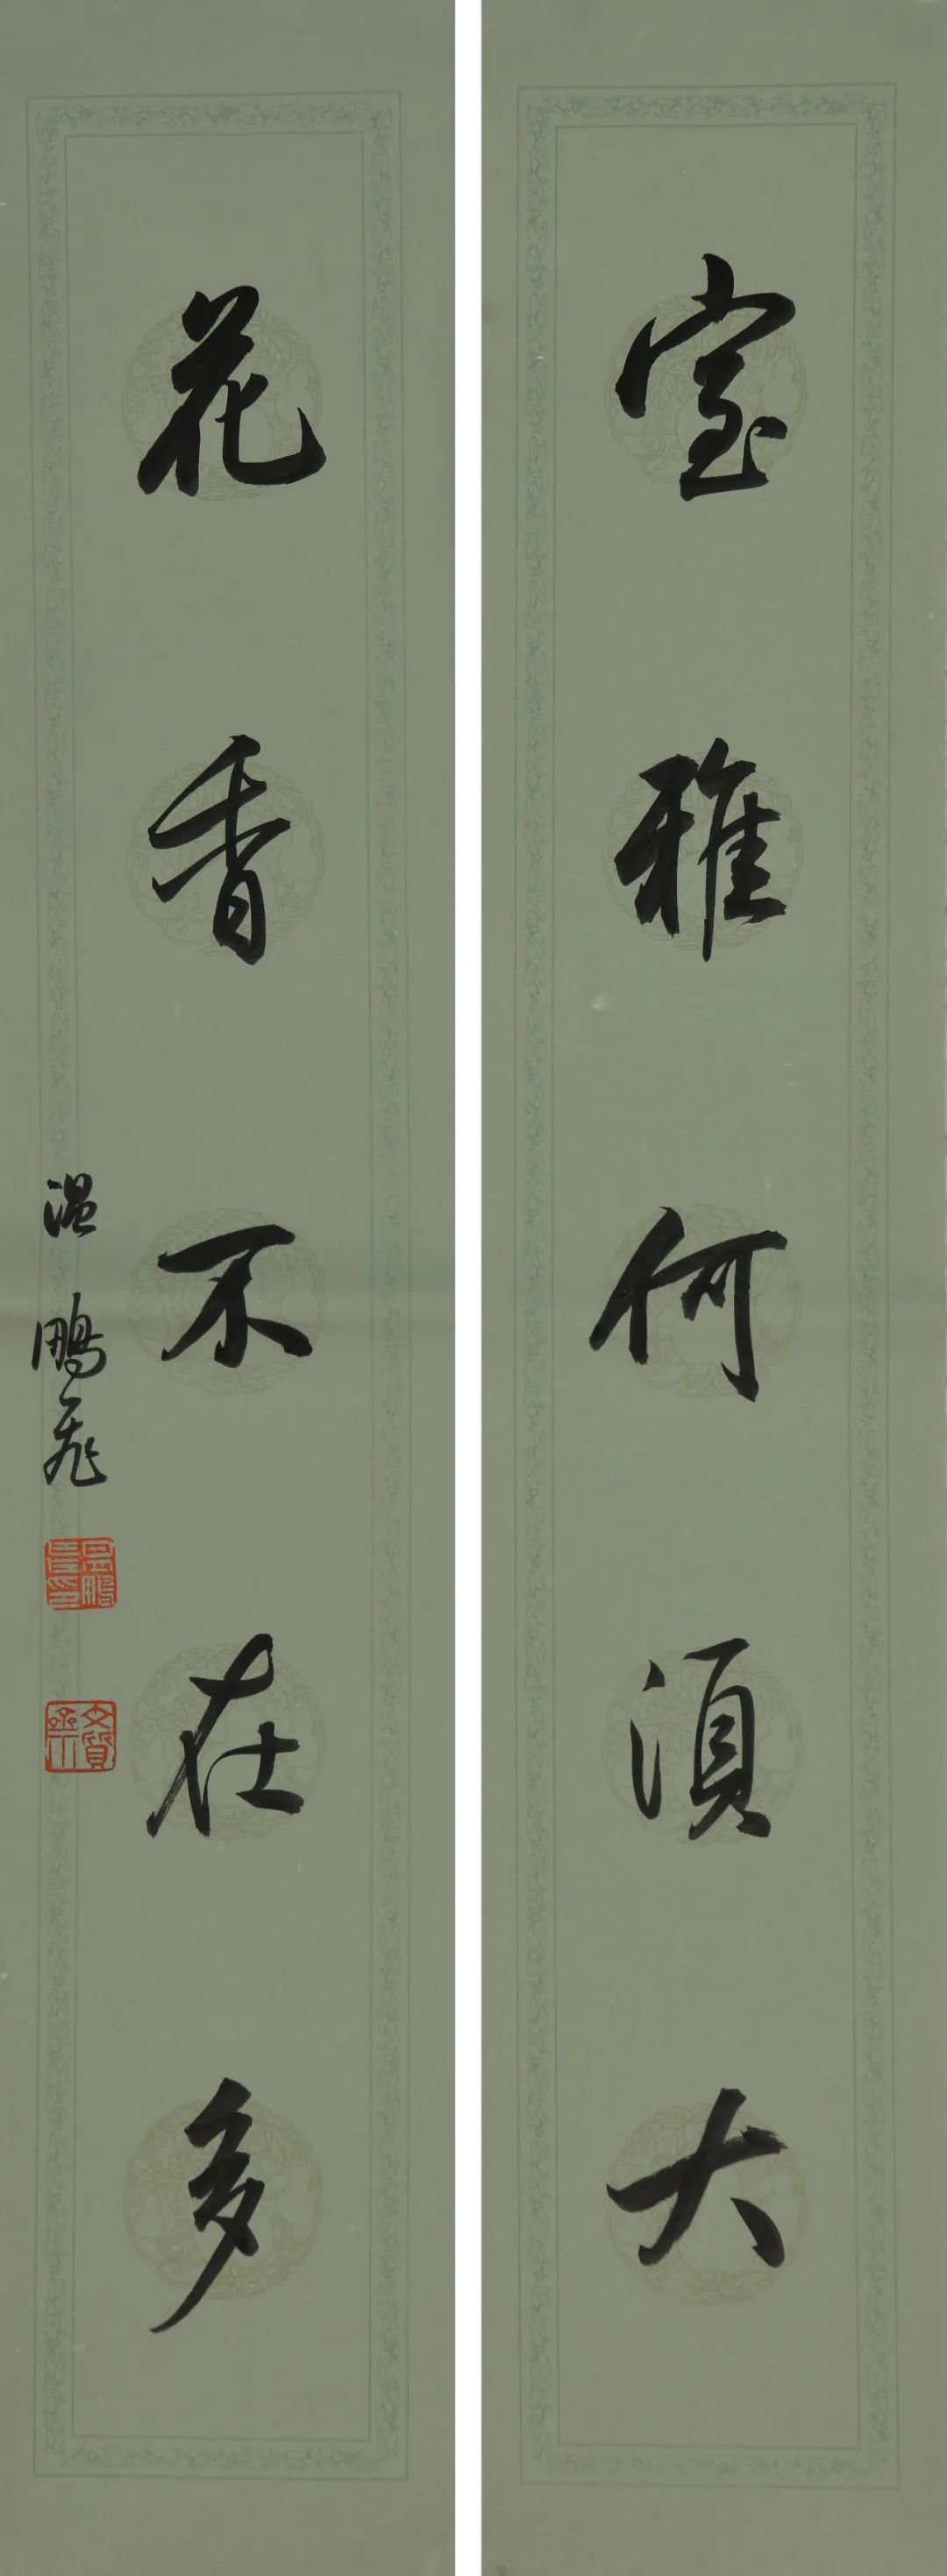 室雅何須大
花香不在多
温鵬飛